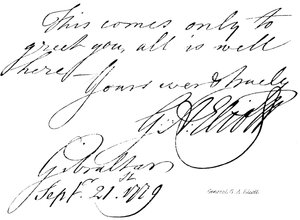 This comes only to
greet you, all is well
here –
Yours ever & truly
G. A. Eliott
Gibraltar
Sept.r 21.st 1779
General G. A. Eliott